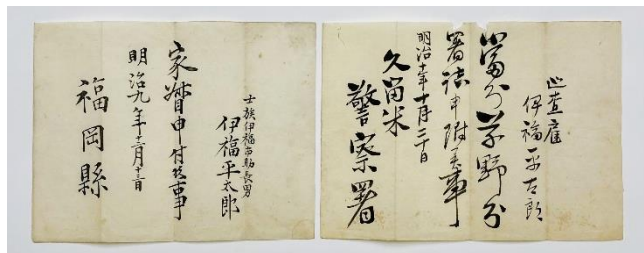 巡査雇
伊福平太郎
當分草野分
署詰申附候事
明治十年十月三十日
久留米
警察署
士族伊福弥助長男
伊福平太郎
家督申付候事
明治九年十二月十三日
福岡縣